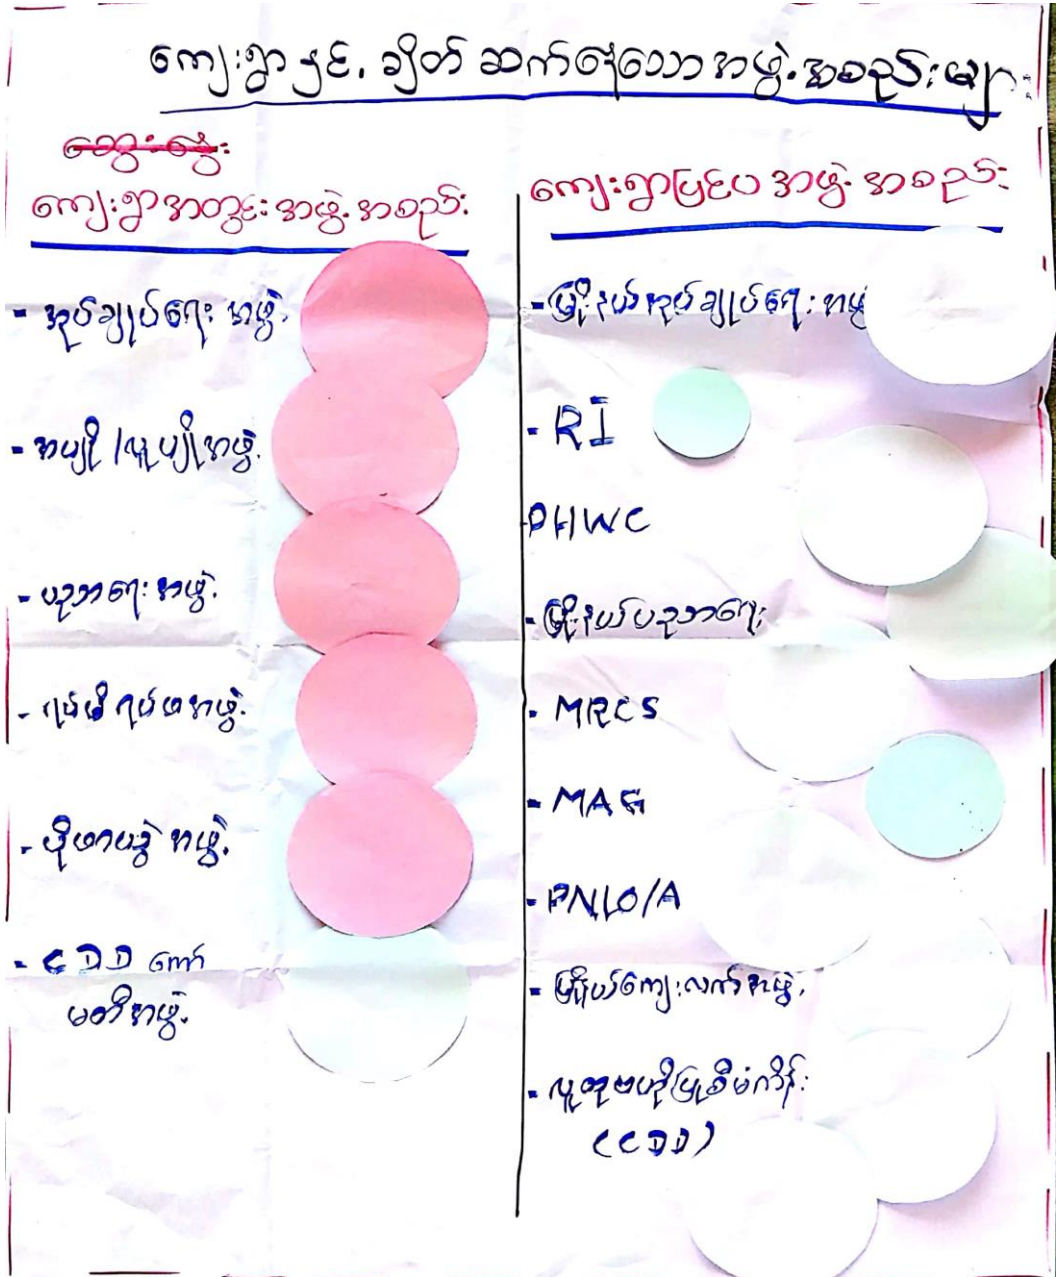 ကျေးရွာနှင့် ချိတ်ဆက်နေသောအဖွဲ့အစည်းများ
ကျေးရွာအတွင်းအဖွဲ့အစည်း
- အုပ်ချုပ်ရေးအဖွဲ့
- အပျို/လူပျိုအဖွဲ့
- ပညာရေးအဖွဲ့
- ရပ်မိရပ်ဖအဖွဲ့
- အဖွဲ့
- CDD ကော်
မတီအဖွဲ့
ကျေးရွာပြင်ပအဖွဲ့အစည်း
- မြို့နယ်အုပ်ချုပ်ရေးအဖွဲ့
- RI
PHWC
- မြို့နယ်ပညာရေး
- MRCS
- MAG
- PNLO/A
- မြို့နယ်ကျေးလက်အဖွဲ့
- လူထုဗဟိုပြုစီမံကိန်း
(CDD)